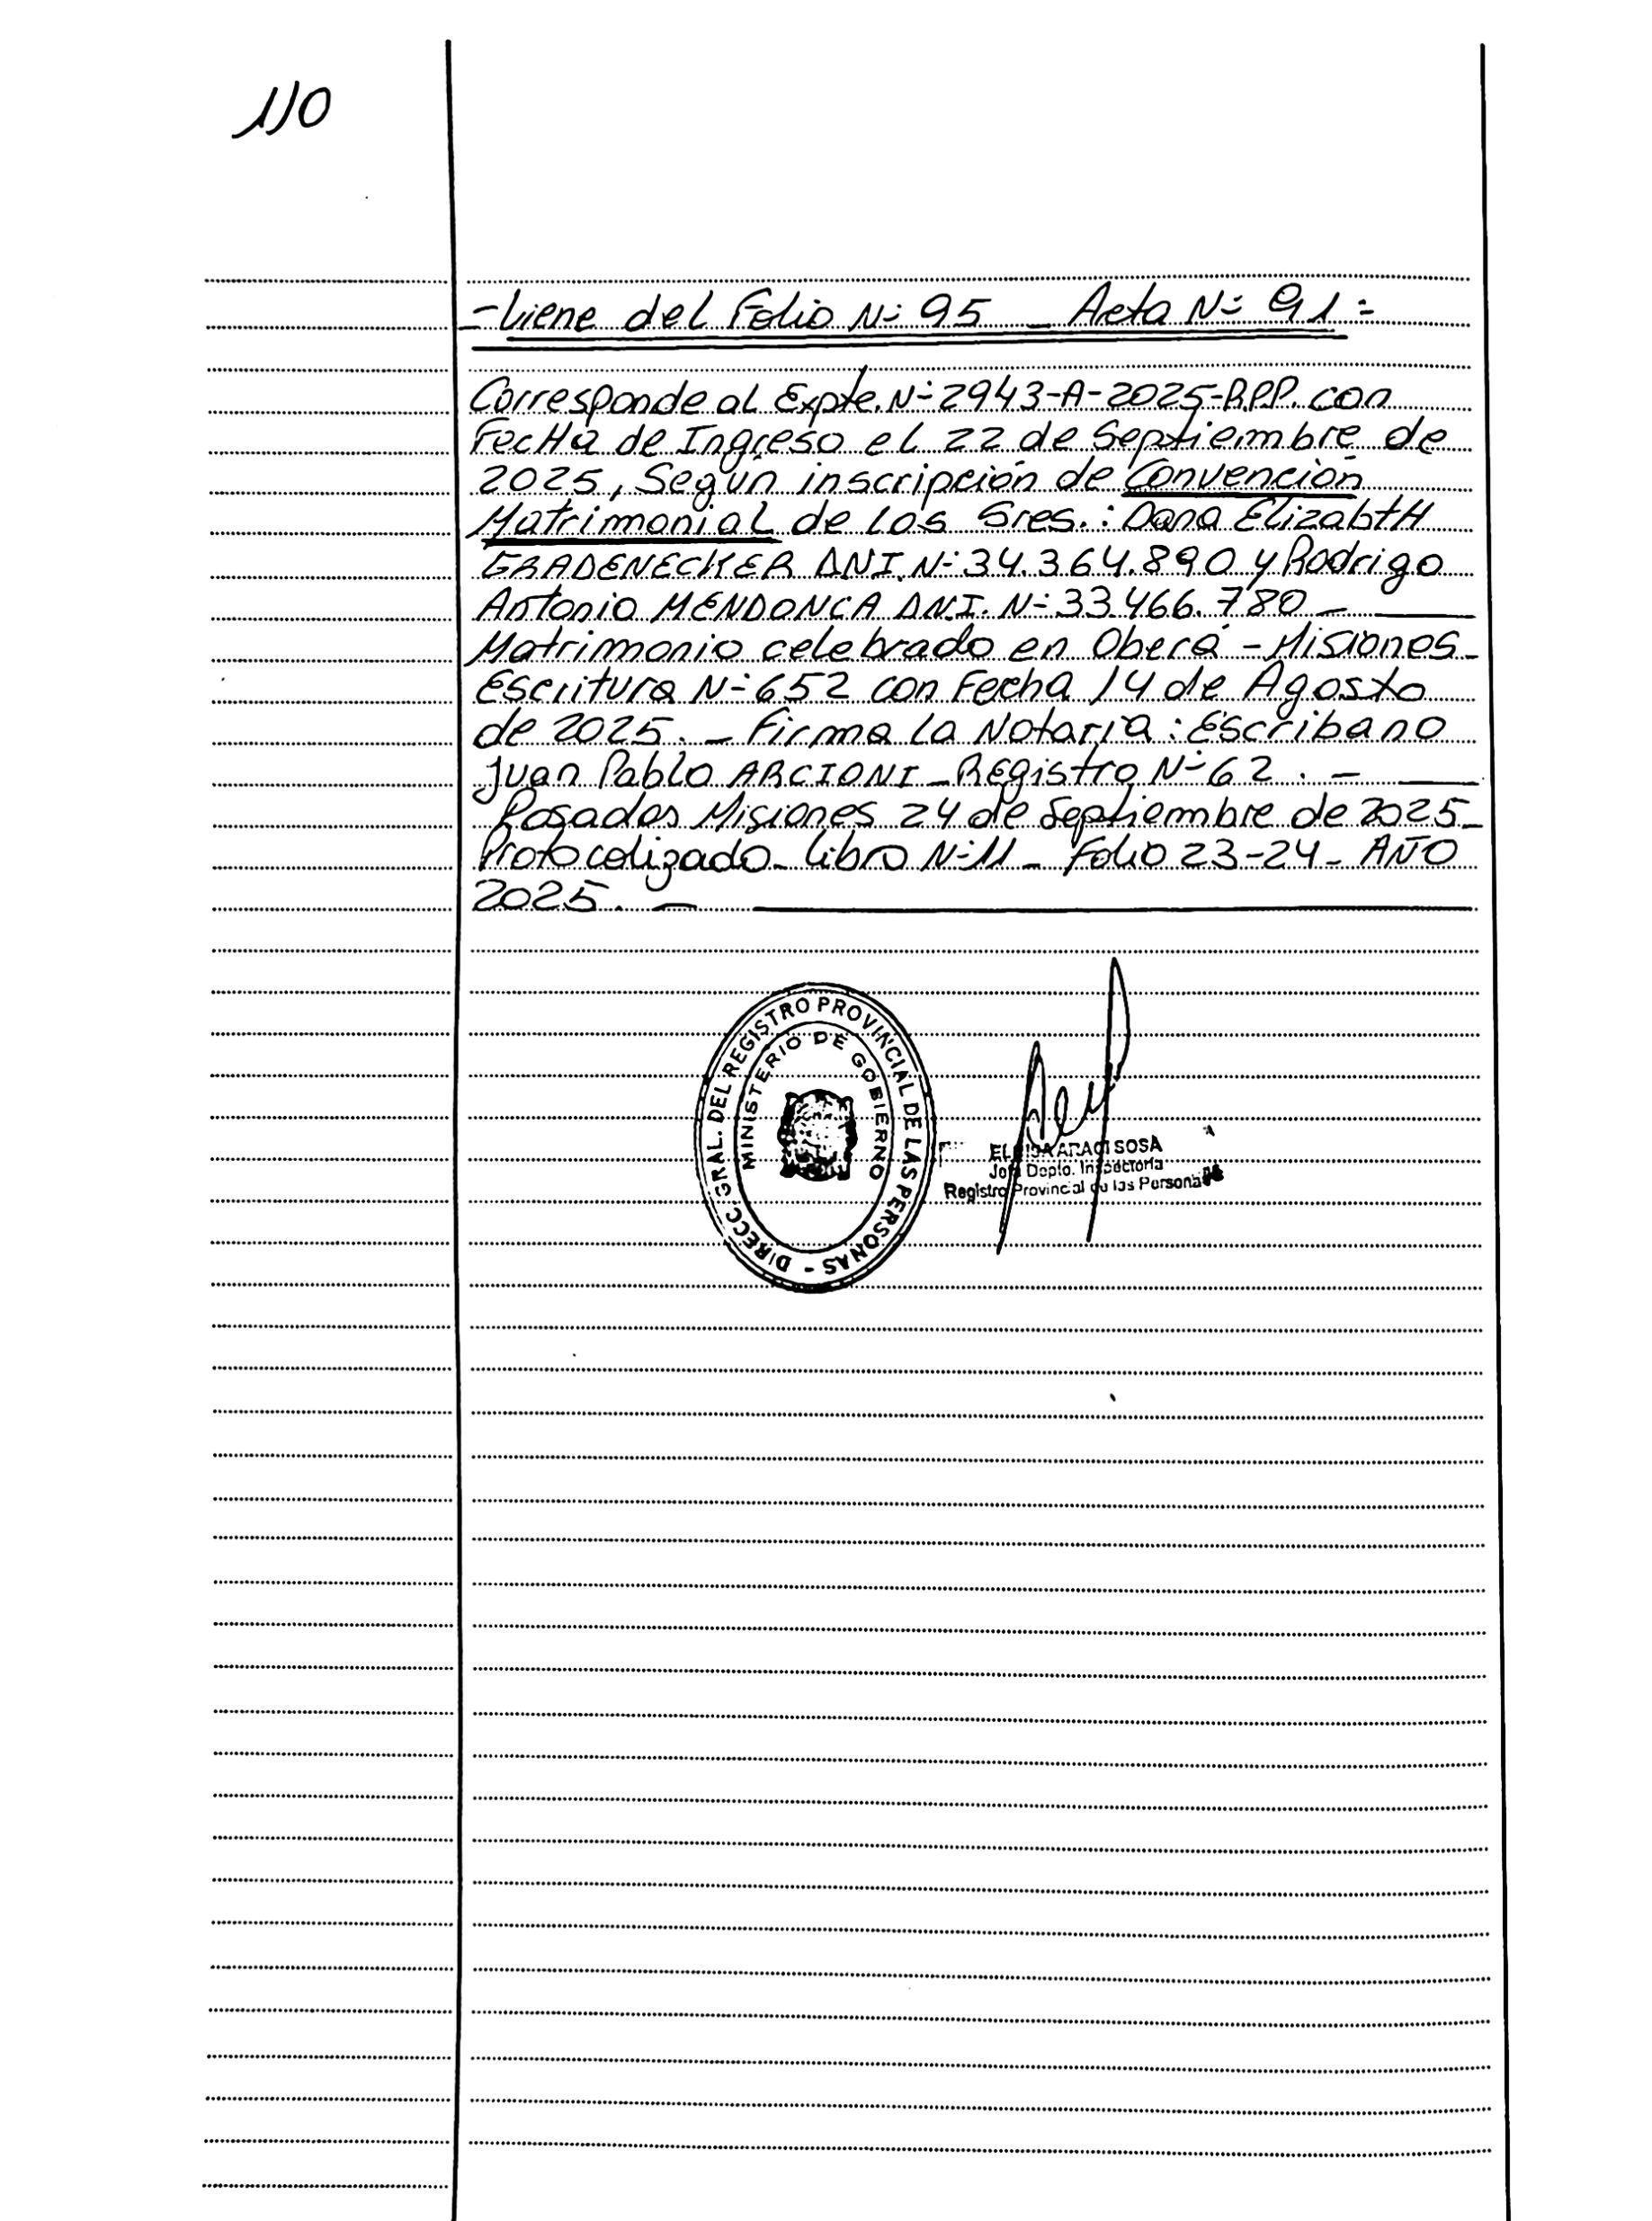 110
- Viene del Folio N° 95 _ Acta N° 91 =
Corresponde al Expte. N° 2943-A-2025-R.P.P. con
FecHa de Ingreso el 22 de Septiembre de
2025, Según inscripción de Convención
Matrimonial de los Sres.: Dana ElizabtH
GRADENECKER DNI. N° 34.364.890 y Rodrigo
Antonio MENDONCA D.N.I. N° 33.466.780 _
Matrimonio celebrado en Oberá - Misiones -
Escritura N° 652 con Fecha 14 de Agosto
de 2025. _ Firma la Notaria: Escribano
Juan Pablo ARCIONI _ REgistro N° 62 . _
Posadas Misiones 24 de Septiembre de 2025 _
Protocolizado _ Libro N° 11 _ Folio 23-24 _ AÑO
2025. _
DIRECC. GRAL. DEL REGISTRO PROVINCIAL DE LAS PERSONAS -
MINISTERIO DE GOBIERNO
ARACI SOSA
Jefa Depto. Inspectoria
Registro Provincial de las Personas